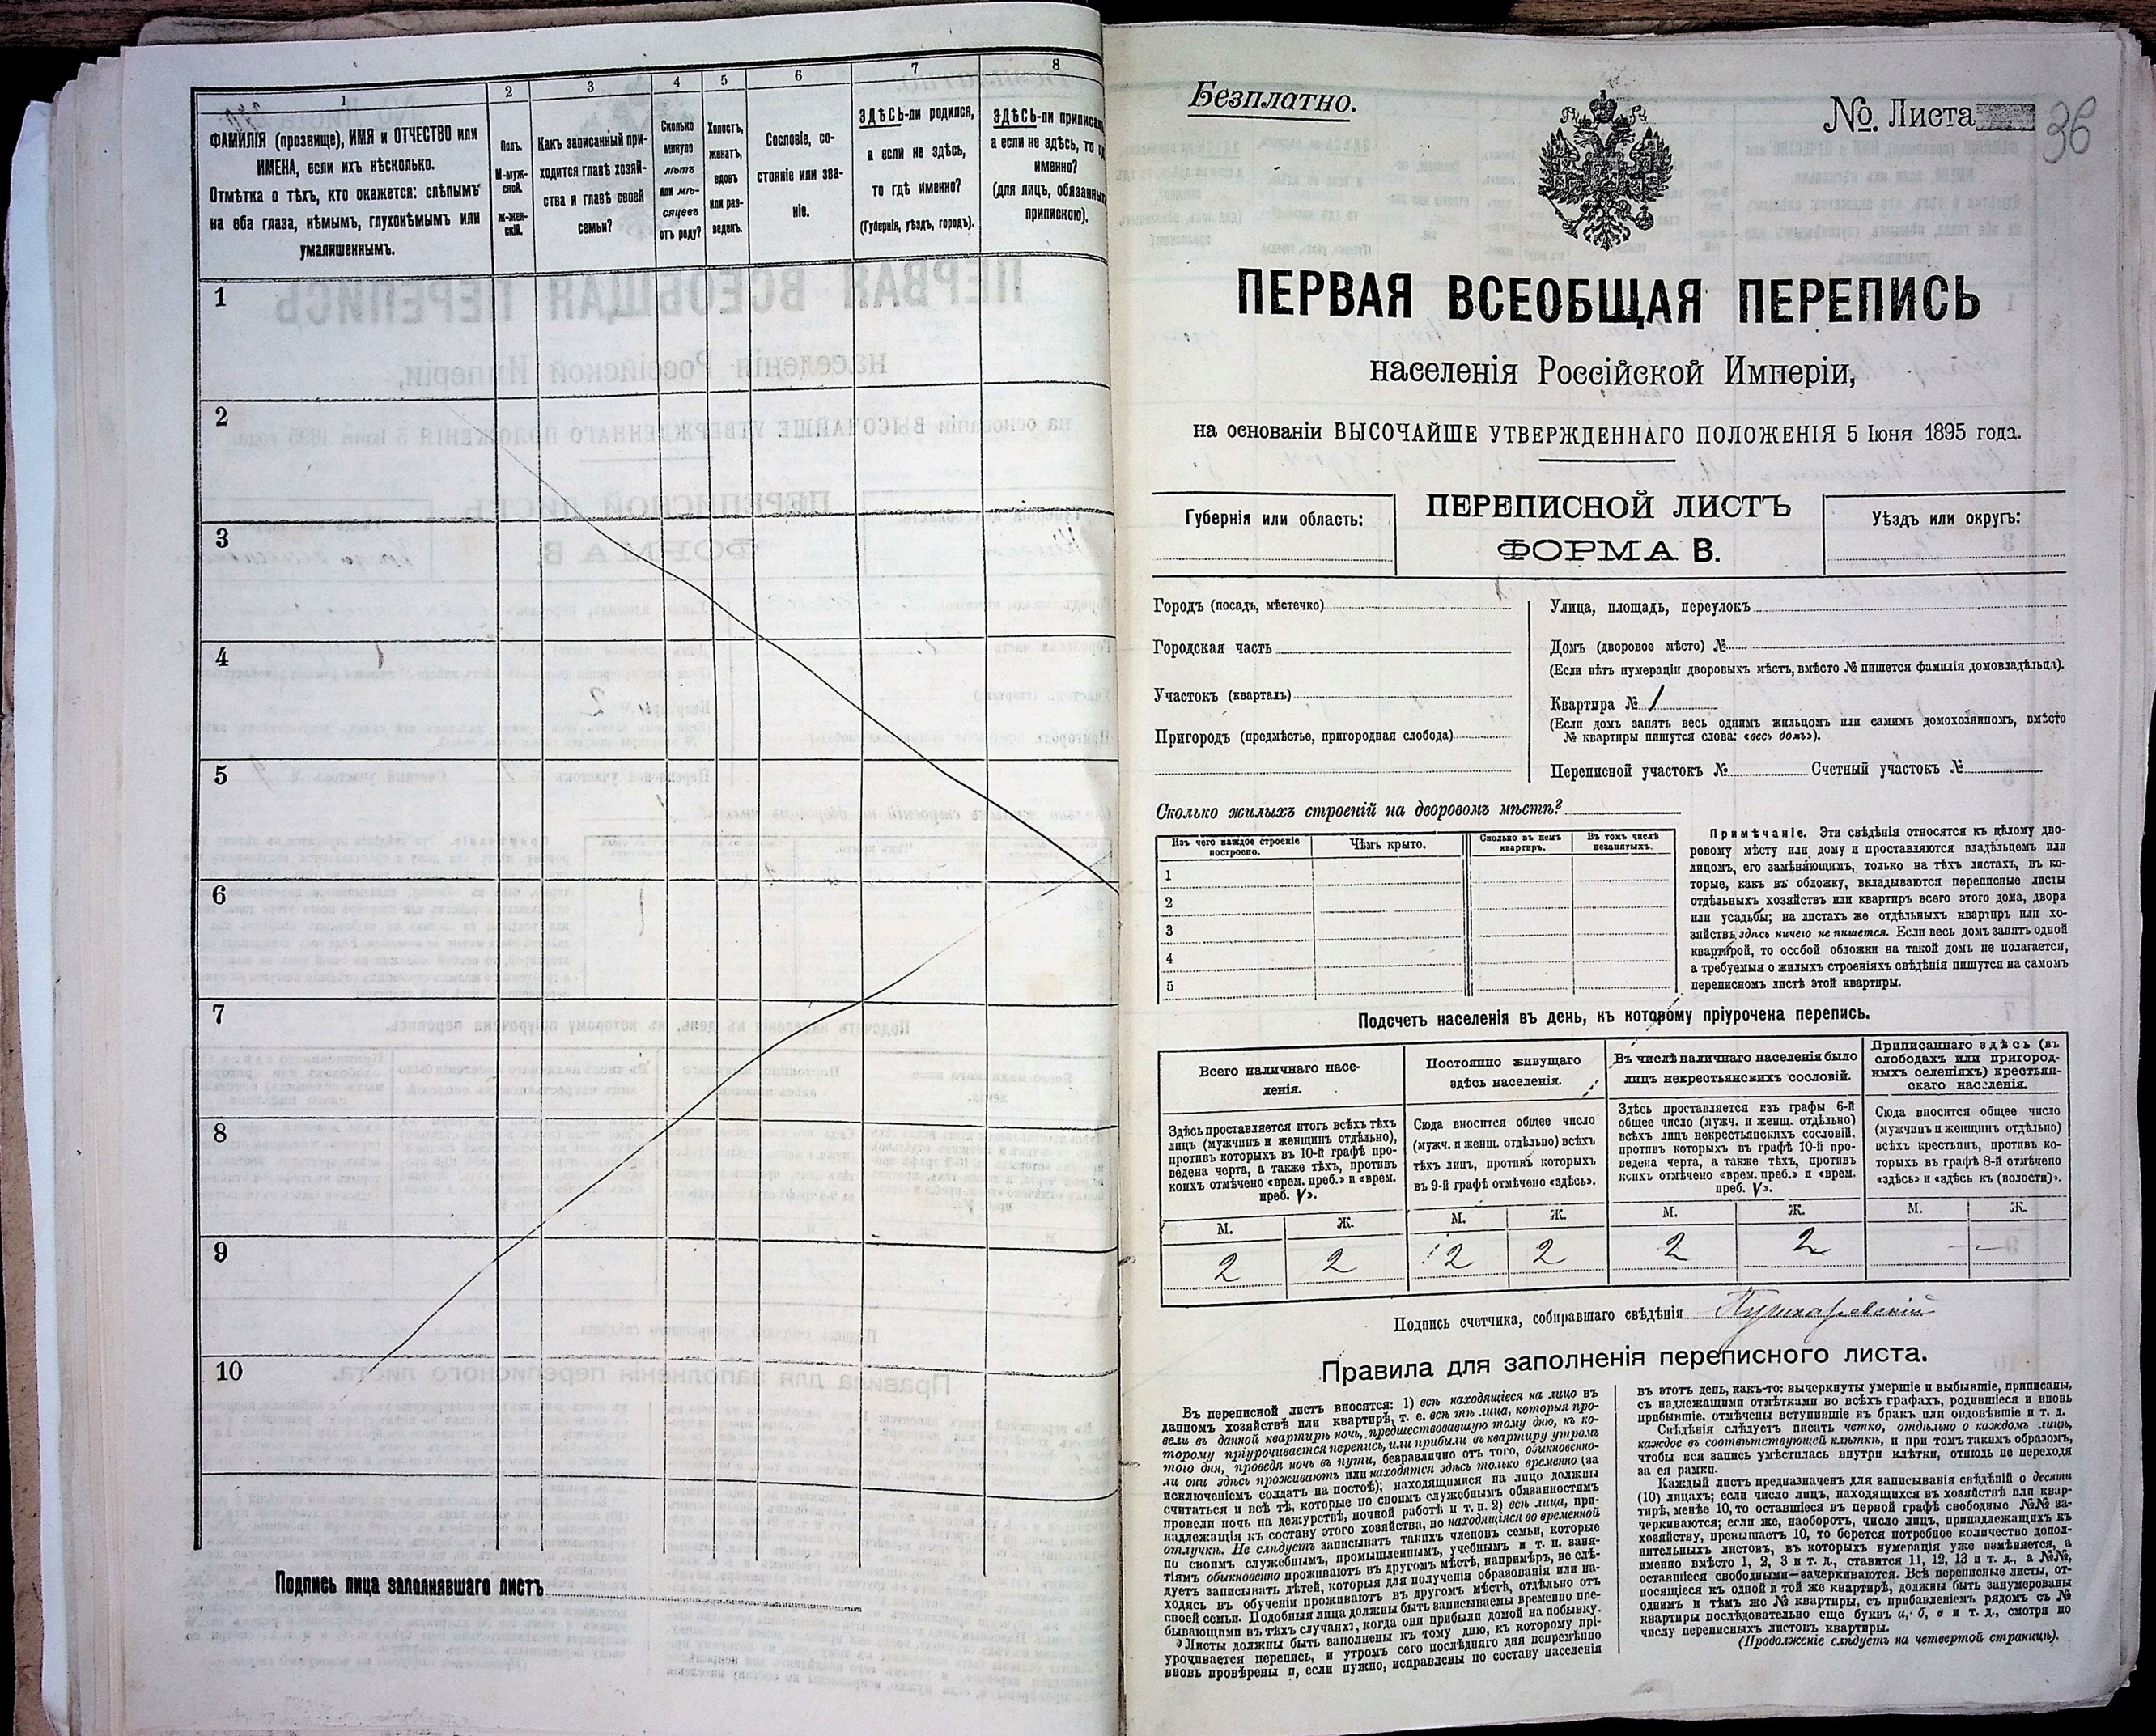 1
ФАМИЛІЯ (прозвище), ИМЯ и ОТЧЕСТВО или
ИМЕНА, если ихъ нѣсколько.
Отмѣтка о тѣхъ, кто окажется: слѣпымъ
на оба глаза, нѣмымъ, глухонѣмымъ или
умалишеннымъ.
2
Полъ.
М-муж-
ской.
Ж-жен-
скій.
3
Какъ записанный при-
ходится главѣ хозяй-
ства и главѣ своей
семьи?
4
Сколько
минуло
лѣтъ
или мѣ-
сяцевъ
отъ роду?
5
Холостъ,
женатъ,
вдовъ
или раз-
веденъ.
6
Сословіе, со-
стояніе или зва-
ніе.
7
ЗДѢСЬ-ли родился,
а если не здѣсь,
то гдѣ именно?
(Губернія, уѣздъ, городъ).
8
ЗДѢСЬ-ли приписанъ
а если не здѣсь, то
именно?
(для лицъ, обязанныхъ
припискою).
1
2
3
4
5
6
7
8
9
10
Подпись лица заполнявшаго листъ
Безплатно.
№ Листа 36
ПЕРВАЯ ВСЕОБЩАЯ ПЕРЕПИСЬ
населенія Россійской Имперіи,
на основаніи ВЫСОЧАЙШЕ УТВЕРЖДЕННАГО ПОЛОЖЕНІЯ 5 Іюня 1895 года.
Губернія или область:
ПЕРЕПИСНОЙ ЛИСТЪ
ФОРМА В.
Уѣздъ или округъ:
Городъ (посадъ, мѣстечко)
Городская часть
Участокъ (кварталъ)
Пригородъ (предмѣстье, пригородная слобода)
Улица, площадь, переулокъ
Домъ (дворовое мѣсто) №
(Если нѣтъ нумераціи дворовыхъ мѣстъ, вмѣсто № пишется фамилія домовладѣльца).
Квартира № 1
(Если домъ занятъ весь однимъ жильцомъ или самимъ домохозяиномъ, вмѣсто
№ квартиры пишутся слова: «весь домъ»).
Переписной участокъ № Счетный участокъ №
Сколько жилыхъ строеній на дворовомъ мѣстѣ?
Изъ чего каждое строеніе
построено.
Чѣмъ крыто.
Сколько въ немъ
квартиръ.
Въ томъ числѣ
незанятыхъ.
1
2
3
4
5
Примѣчаніе. Эти свѣдѣнія относятся къ цѣлому дво-
ровому мѣсту или дому и проставляются владѣльцемъ или
лицомъ, его замѣняющимъ, только на тѣхъ листахъ, въ ко-
торые, какъ въ обложку, вкладываются переписные листы
отдѣльныхъ хозяйствъ или квартиръ всего этого дома, двора
или усадьбы; на листахъ же отдѣльныхъ квартиръ или хо-
зяйствъ здѣсь ничего не пишется. Если весь домъ занятъ одной
квартирой, то особой обложки на такой домъ не полагается,
а требуемыя о жилыхъ строеніяхъ свѣдѣнія пишутся на самомъ
переписномъ листѣ этой квартиры.
Подсчетъ населенія въ день, къ которому пріурочена перепись.
Всего наличнаго насе-
ленія.
Здѣсь проставляется итогъ всѣхъ тѣхъ
лицъ (мужчинъ и женщинъ отдѣльно),
противъ которыхъ въ 10-й графѣ про-
ведена черта, а также тѣхъ, противъ
коихъ отмѣчено «врем. преб.» и «врем.
преб. V».
Постоянно живущаго
здѣсь населенія.
Сюда вносится общее число
(мужч. и женщ. отдѣльно) всѣхъ
тѣхъ лицъ, противъ которыхъ
въ 9-й графѣ отмѣчено «здѣсь».
Въ числѣ наличнаго населенія было
лицъ некрестьянскихъ сословій.
Здѣсь проставляется изъ графы 6-й
общее число (мужч. и женщ. отдѣльно)
всѣхъ лицъ некрестьянскихъ сословій,
противъ которыхъ въ графѣ 10-й про-
ведена черта, а также тѣхъ, противъ
коихъ отмѣчено «врем. преб.» и «врем.
преб. V».
Приписаннаго здѣсь (въ
слободахъ или пригород-
ныхъ селеніяхъ) крестьян-
скаго населенія.
Сюда вносится общее число
(мужчинъ и женщинъ отдѣльно)
всѣхъ крестьянъ, противъ ко-
торыхъ въ графѣ 8-й отмѣчено
«здѣсь» и «здѣсь къ (волости)».
М. Ж. М. Ж. М. Ж. М. Ж.
2 2 2 2 2 2 — —
Подпись счетчика, собиравшаго свѣдѣнія
Правила для заполненія переписного листа.
Въ переписной листъ вносятся: 1) всѣ находящіеся на лицо въ
данномъ хозяйствѣ или квартирѣ, т. е. всѣ тѣ лица, которыя про-
вели въ данной квартирѣ ночь, предшествовавшую тому дню, къ ко-
торому пріурочивается перепись, или прибыли въ квартиру утромъ
того дня, проведя ночь въ пути, безразлично отъ того, обыкновенно-
ли они здѣсь проживаютъ или находятся здѣсь только временно (за
исключеніемъ солдатъ на постоѣ); находящимися на лицо должны
считаться и всѣ тѣ, которые по своимъ служебнымъ обязанностямъ
провели ночь на дежурствѣ, ночной работѣ и т. п. 2) всѣ лица, при-
надлежащія къ составу этого хозяйства, но находящіяся во временной
отлучкѣ. Не слѣдуетъ записывать такихъ членовъ семьи, которые
по своимъ служебнымъ, промышленнымъ, учебнымъ и т. п. заня-
тіямъ обыкновенно проживаютъ въ другомъ мѣстѣ, напримѣръ, не слѣ-
дуетъ записывать дѣтей, которыя для полученія образованія или на-
ходясь въ обученіи проживаютъ въ другомъ мѣстѣ, отдѣльно отъ
своей семьи. Подобныя лица должны быть записываемы временно пре-
бывающими въ тѣхъ случаяхъ, когда они прибыли домой на побывку.
Листы должны быть заполнены къ тому дню, къ которому прі-
урочивается перепись, и утромъ сего послѣдняго дня непремѣнно
вновь провѣрены и, если нужно, исправлены по составу населенія
въ этотъ день, какъ-то: вычеркнуты умершіе и выбывшіе, приписаны,
съ надлежащими отмѣтками во всѣхъ графахъ, родившіеся и вновь
прибывшіе, отмѣчены вступившіе въ бракъ или овдовѣвшіе и т. д.
Свѣдѣнія слѣдуетъ писать четко, отдѣльно о каждомъ лицѣ,
каждое въ соотвѣтствующей клѣткѣ, и при томъ такимъ образомъ,
чтобы вся запись умѣстилась внутри клѣтки, отнюдь не переходя
за ея рамки.
Каждый листъ предназначенъ для записыванія свѣдѣній о десяти
(10) лицахъ; если число лицъ, находящихся въ хозяйствѣ или квар-
тирѣ, менѣе 10, то оставшіеся въ первой графѣ свободные №№ за-
черкиваются; если же, наоборотъ, число лицъ, принадлежащихъ къ
хозяйству, превышаетъ 10, то берется потребное количество допол-
нительныхъ листовъ, въ которыхъ нумерація уже измѣняется, а
именно вмѣсто 1, 2, 3 и т. д., ставится 11, 12, 13 и т. д., а №№,
оставшіеся свободными—зачеркиваются. Всѣ переписные листы, от-
носящіеся къ одной и той же квартирѣ, должны быть занумерованы
однимъ и тѣмъ же № квартиры, съ прибавленіемъ рядомъ съ №
квартиры послѣдовательно еще буквъ а, б, в и т. д., смотря по
числу переписныхъ листовъ квартиры.
(Продолженіе слѣдуетъ на четвертой страницѣ).